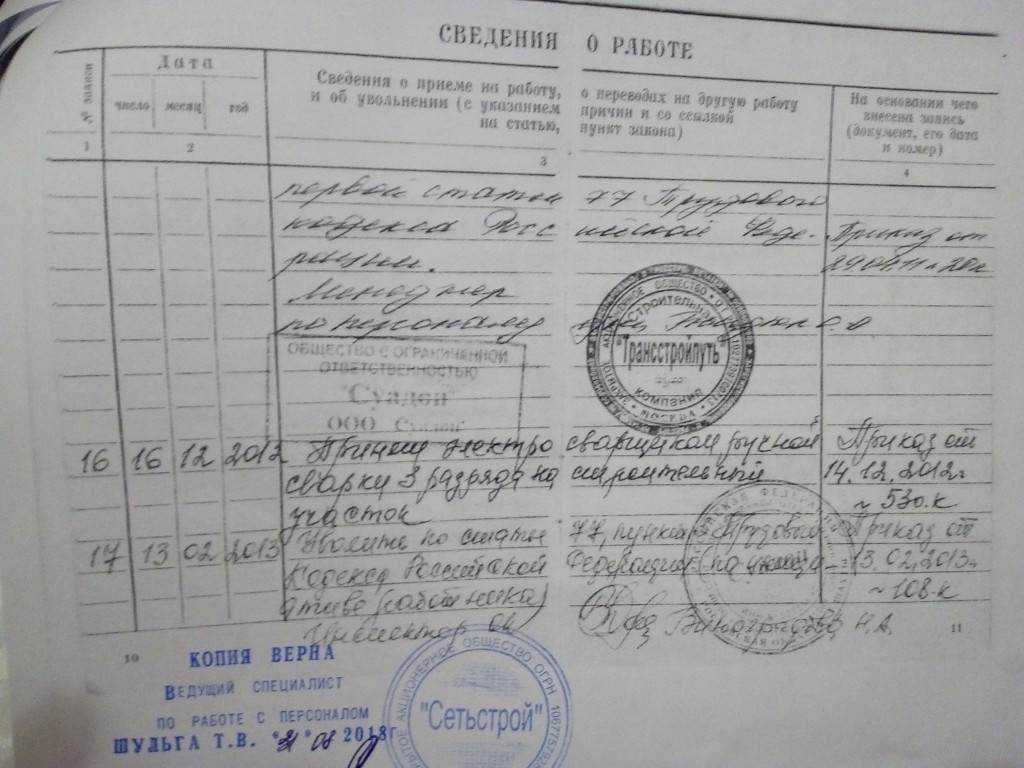 СВЕДЕНИЯ О РАБОТЕ
№ записи
Дата
Сведения о приеме на работу, о переводах на другую работу
и об увольнении (с указанием причин и со ссылкой
на статью, пункт закона)
На основании чего
внесена запись
(документ, его дата
и номер)
число месяц год
1 2 3 4
первой статьи 77 Трудового
кодекса Российской Феде- Приказ от
рации.
Менеджер
по персоналу
ОБЩЕСТВО С ОГРАНИЧЕННОЙ
ОТВЕТСТВЕННОСТЬЮ
АКЦИОНЕРНОЕ ОБЩЕСТВО
Строительная
"Трансстройпуть"
КОМПАНИЯ
МОСКВА
16 16 12 2012 Принят электросварщиком ручной Приказ от
сварки 3 разряда на строительный 14.12.2012г
участок № 530-к
17 13 02 2013 Уволить по статье 77, пункт 3 Трудового Приказ от
Кодекса Российской Федерации (по инициа- 13.02.2013г
ативе работника) № 108-к
Инспектор ОК Виноградова Н.А.
10 11
КОПИЯ ВЕРНА
ВЕДУЩИЙ СПЕЦИАЛИСТ
ПО РАБОТЕ С ПЕРСОНАЛОМ
ШУЛЬГА Т.В. "31" 08 2018г
АКЦИОНЕРНОЕ ОБЩЕСТВО ОГРН
"Сетьстрой"